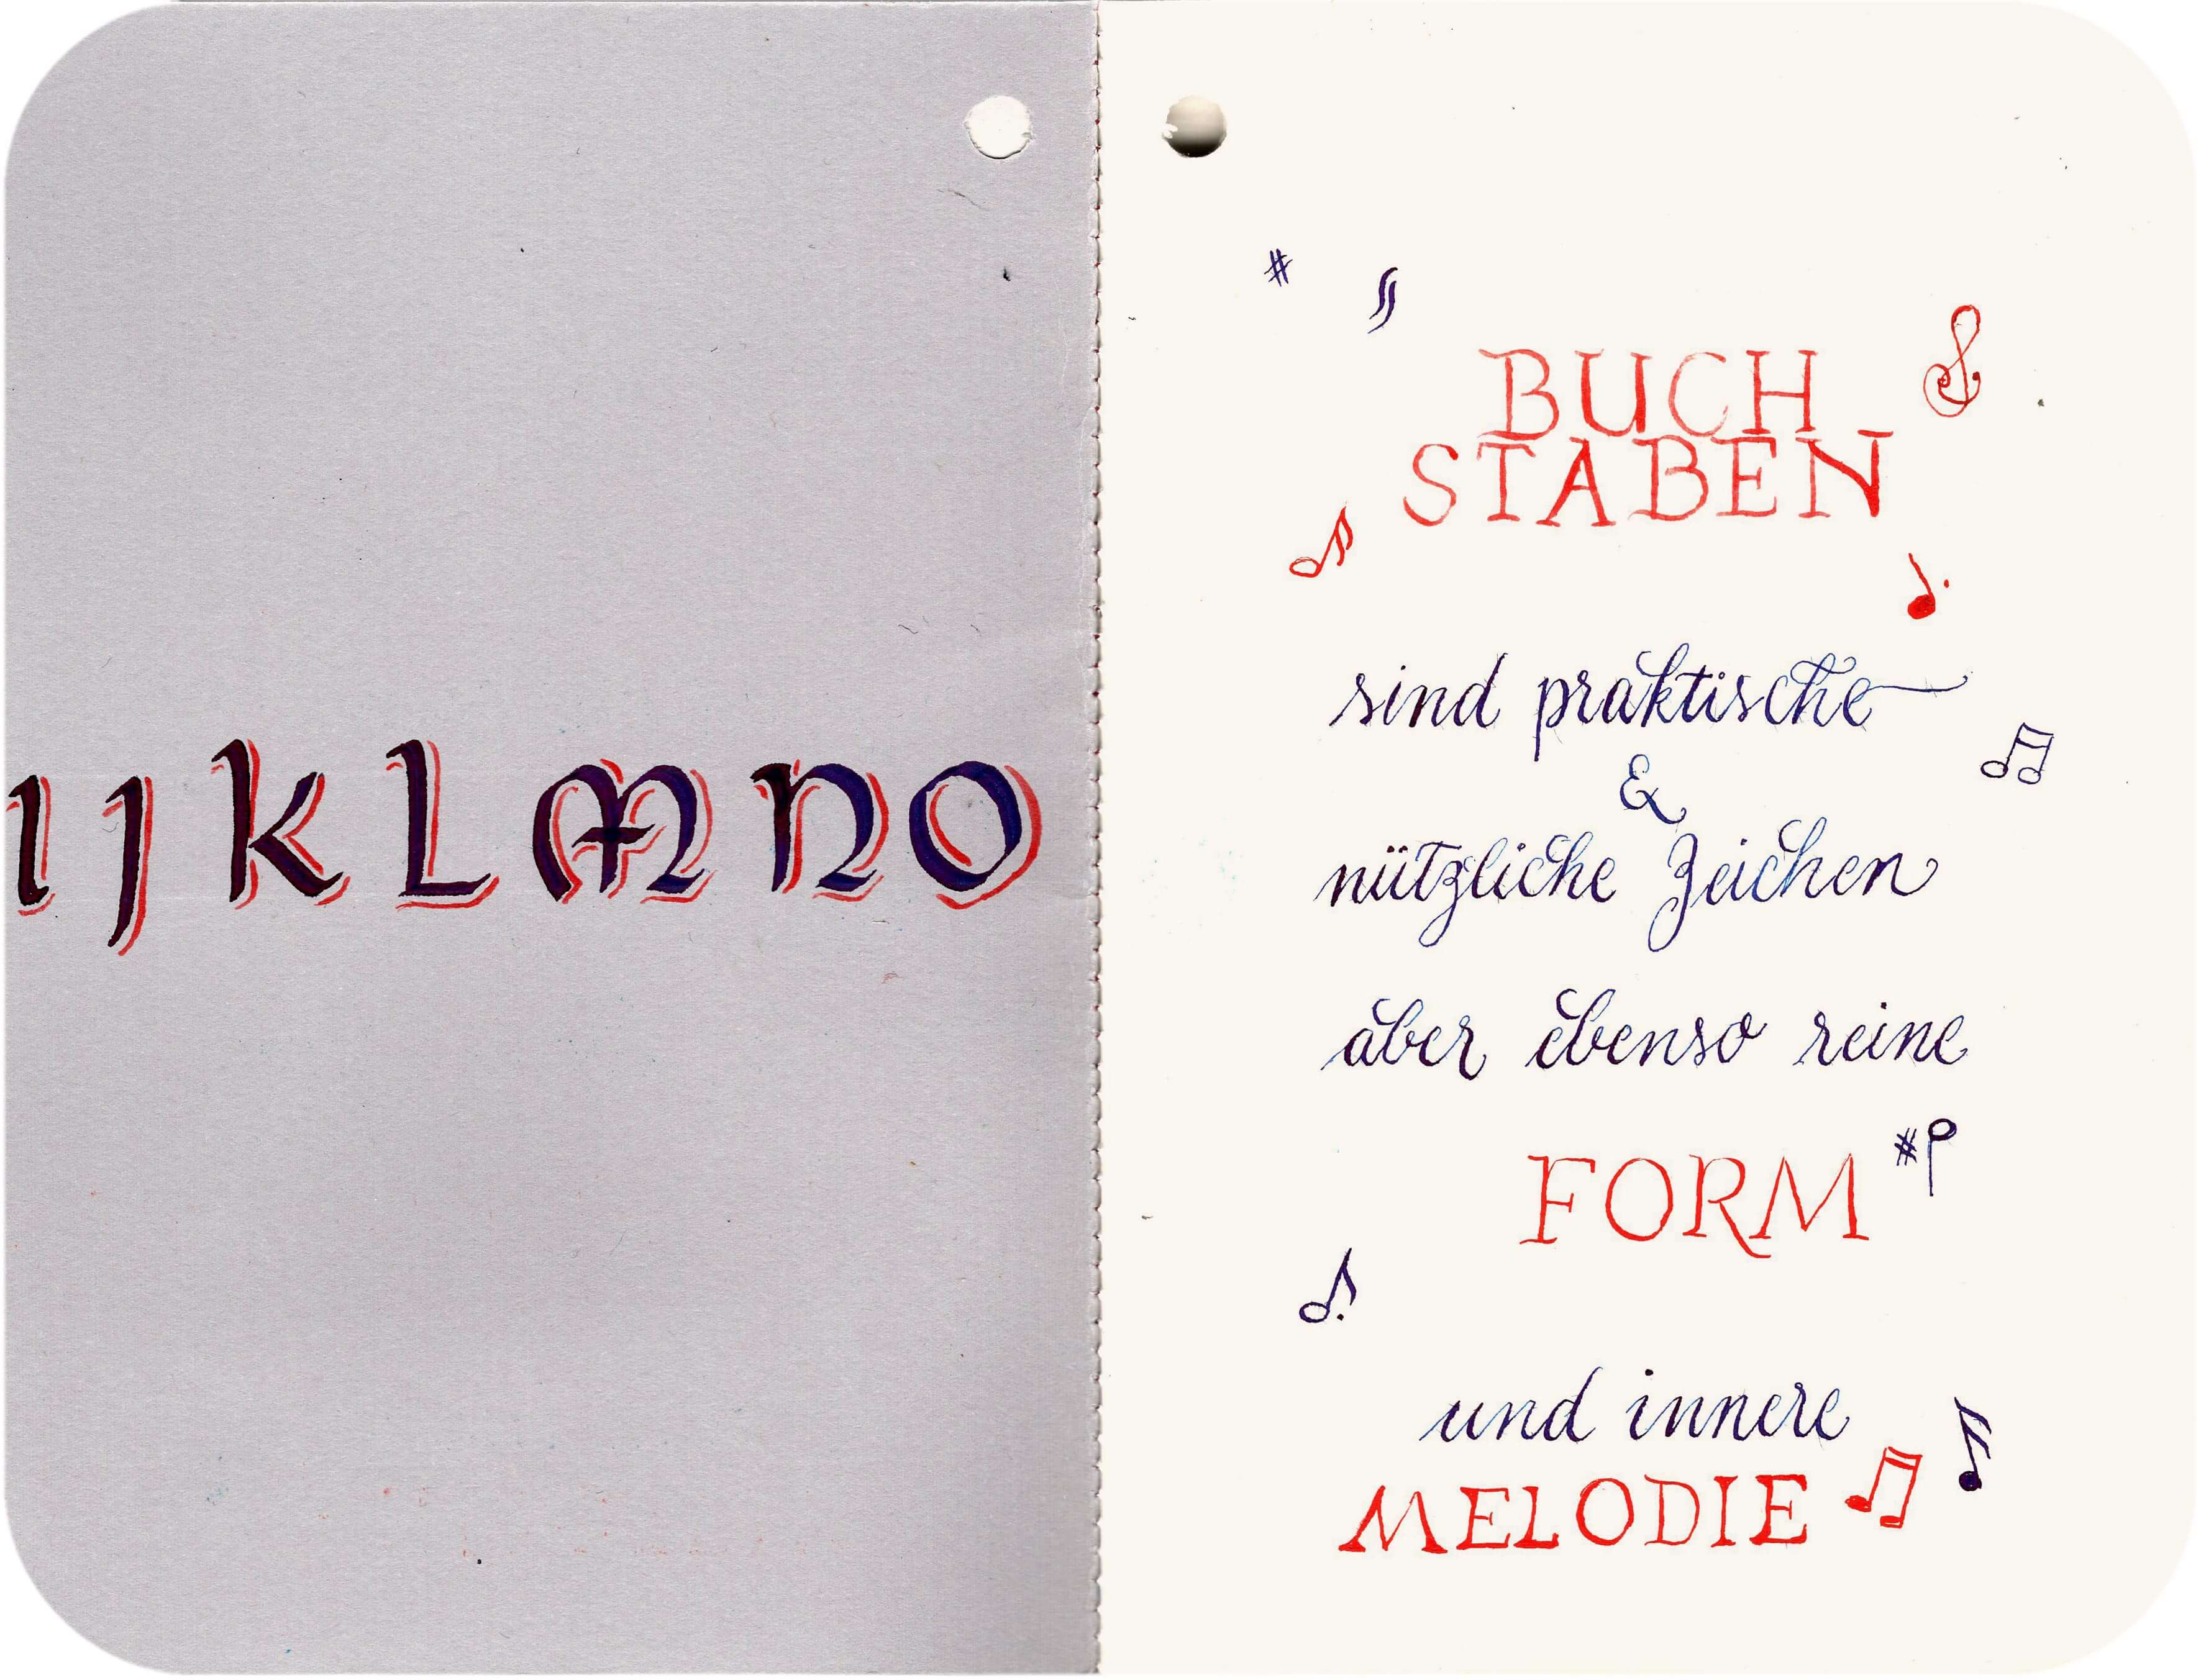 ı ȷ k L m n o
BUCH
STABEN
sind praktische
&
nützliche Zeichen
aber ebenso reine
FORM
und innere
MELODIE